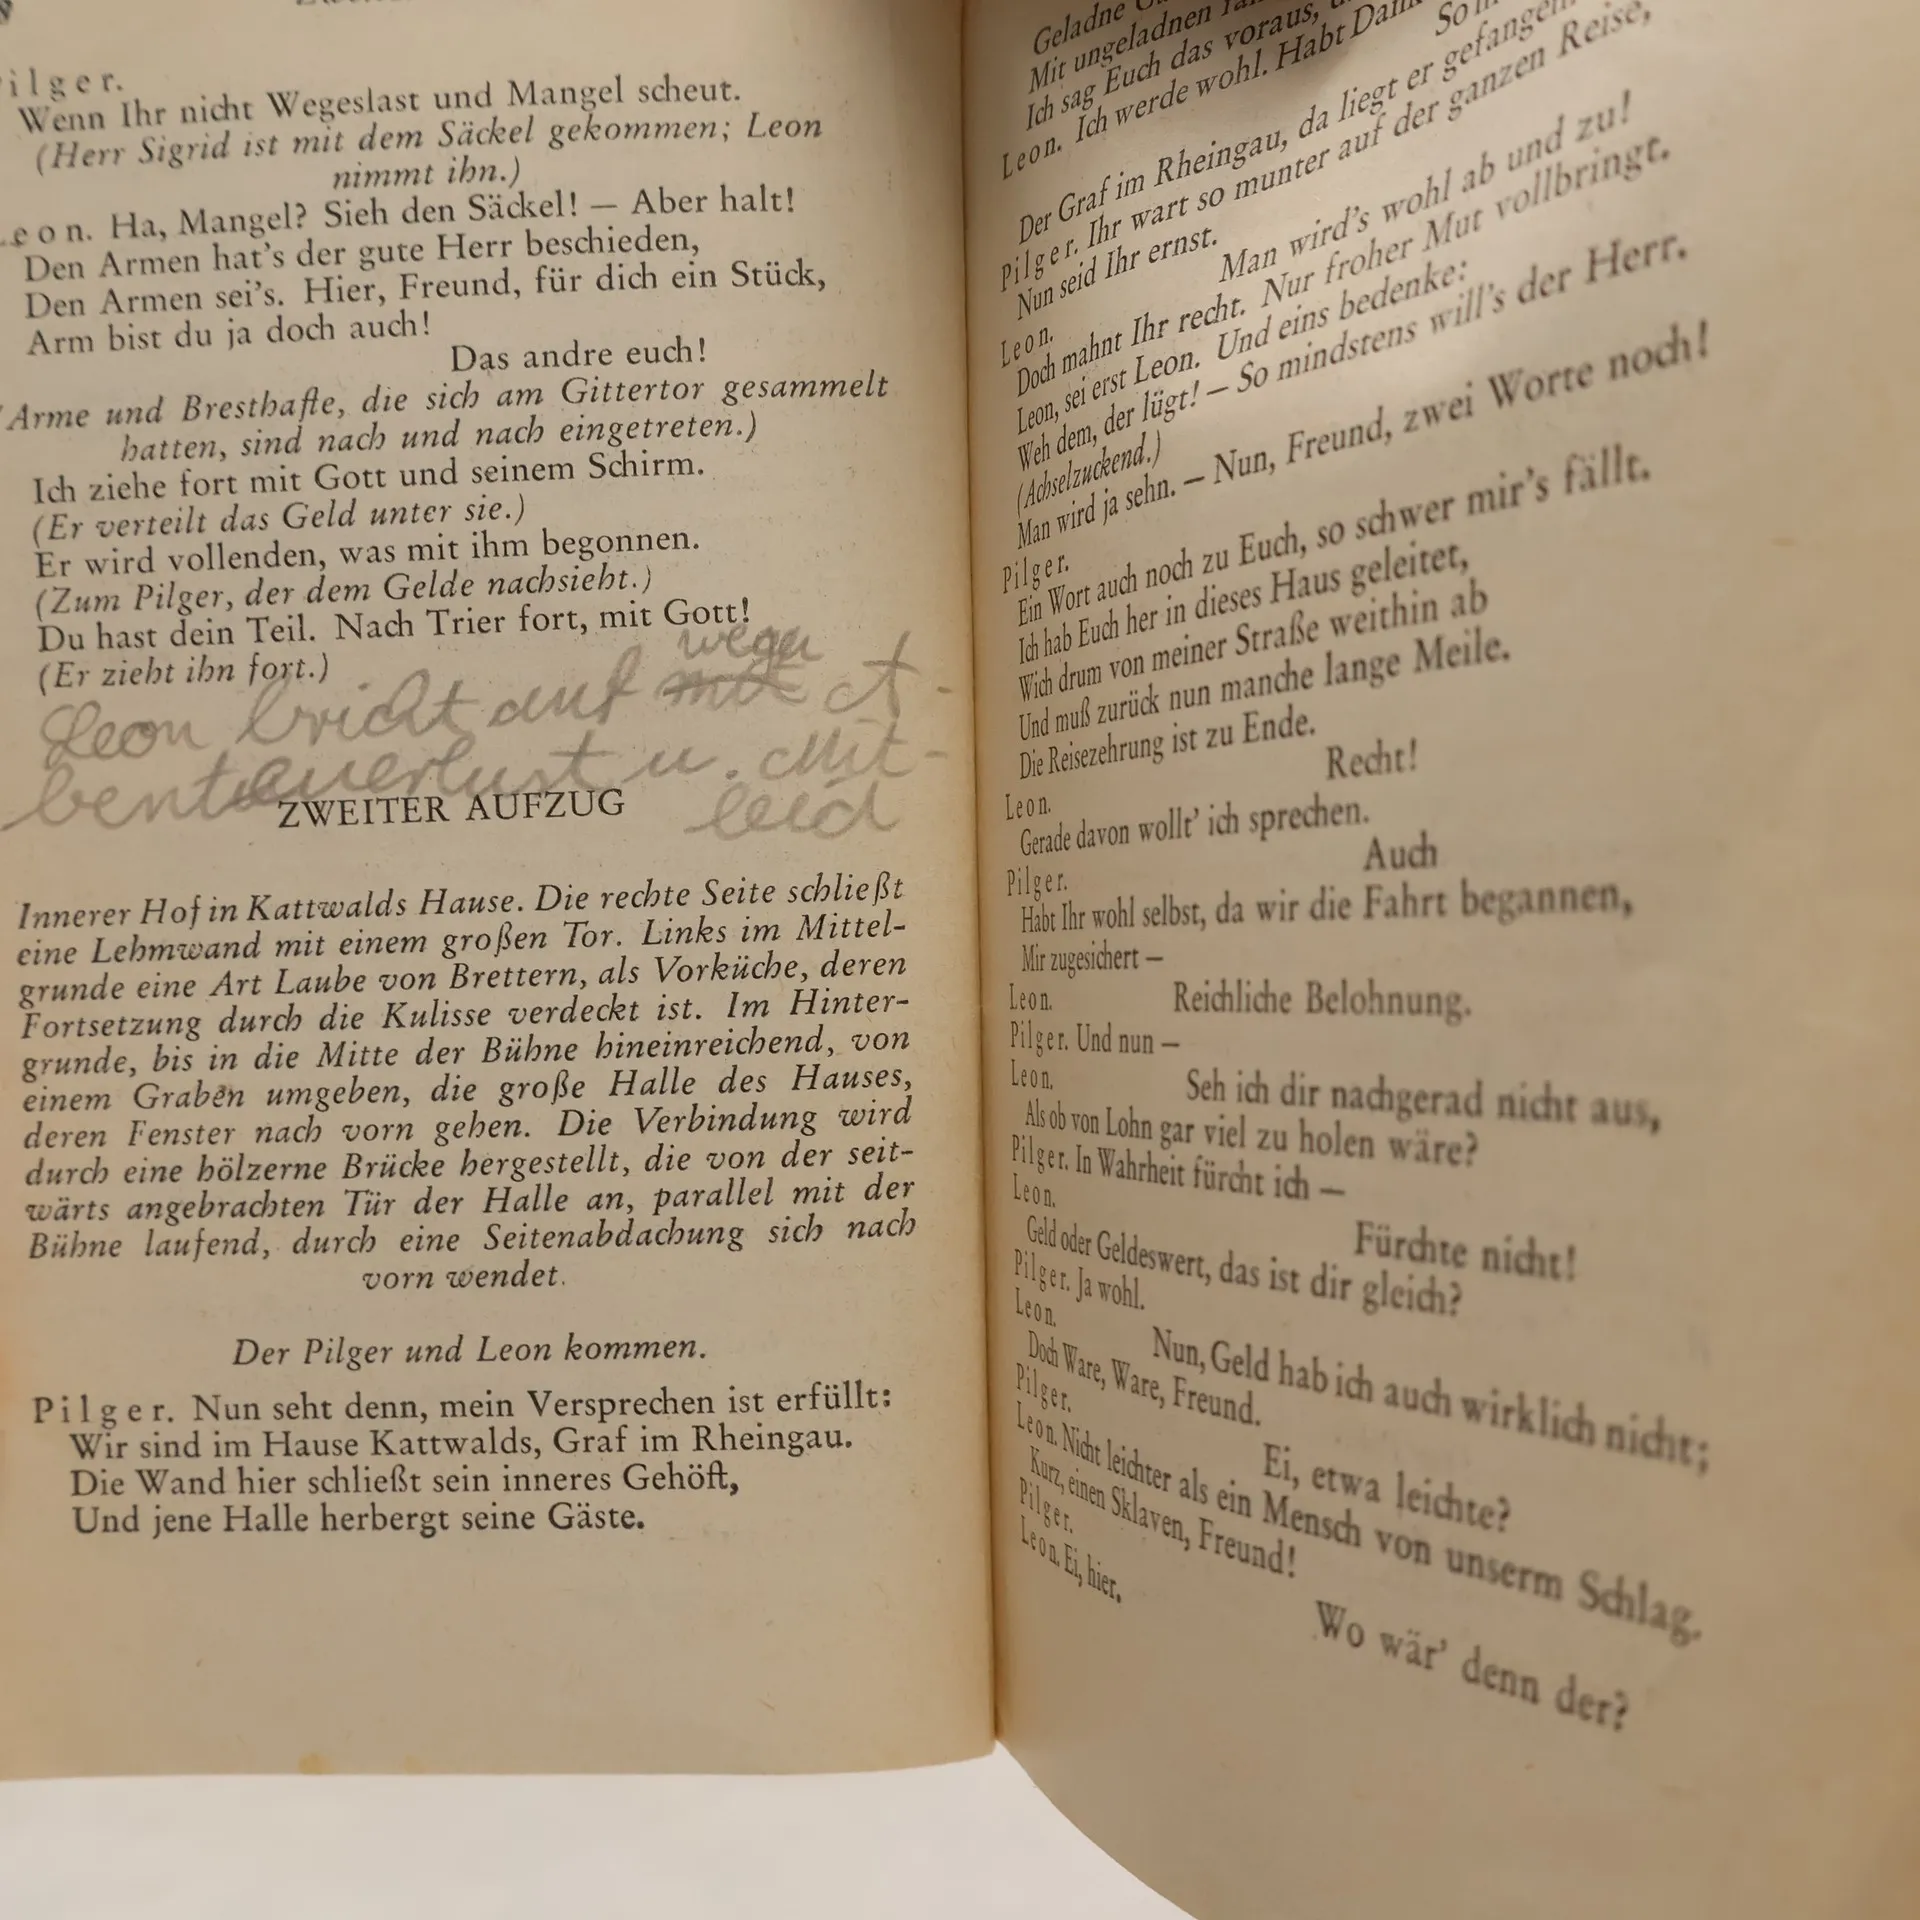 Pilger.
Wenn Ihr nicht Wegeslast und Mangel scheut.
(Herr Sigrid ist mit dem Säckel gekommen; Leon
nimmt ihn.)
Leon. Ha, Mangel? Sieh den Säckel! — Aber halt!
Den Armen hat's der gute Herr beschieden,
Den Armen sei's. Hier, Freund, für dich ein Stück,
Arm bist du ja doch auch!
Das andre euch!
(Arme und Bresthafte, die sich am Gittertor gesammelt
hatten, sind nach und nach eingetreten.)
Ich ziehe fort mit Gott und seinem Schirm.
(Er verteilt das Geld unter sie.)
Er wird vollenden, was mit ihm begonnen.
(Zum Pilger, der dem Gelde nachsieht.)
Du hast dein Teil. Nach Trier fort, mit Gott!
(Er zieht ihn fort.)
wegen
Leon bricht auf mit A-
bentauerlust u. Mit-
leid
ZWEITER AUFZUG
Innerer Hof in Kattwalds Hause. Die rechte Seite schließt
eine Lehmwand mit einem großen Tor. Links im Mittel-
grunde eine Art Laube von Brettern, als Vorküche, deren
Fortsetzung durch die Kulisse verdeckt ist. Im Hinter-
grunde, bis in die Mitte der Bühne hineinreichend, von
einem Graben umgeben, die große Halle des Hauses,
deren Fenster nach vorn gehen. Die Verbindung wird
durch eine hölzerne Brücke hergestellt, die von der seit-
wärts angebrachten Tür der Halle an, parallel mit der
Bühne laufend, durch eine Seitenabdachung sich nach
vorn wendet.
Der Pilger und Leon kommen.
Pilger. Nun seht denn, mein Versprechen ist erfüllt:
Wir sind im Hause Kattwalds, Graf im Rheingau.
Die Wand hier schließt sein inneres Gehöft,
Und jene Halle herbergt seine Gäste.
Geladne
Mit ungeladnen
Ich sag Euch das voraus,
Leon. Ich werde wohl. Habt Dank
Der Graf im Rheingau, da liegt er gefangen
Pilger. Ihr wart so munter auf der ganzen Reise,
Nun seid Ihr ernst.
Leon.
Man wird's wohl ab und zu!
Doch mahnt Ihr recht. Nur froher Mut vollbringt.
Leon, sei erst Leon. Und eins bedenke:
Weh dem, der lügt! — So mindstens will's der Herr.
(Achselzuckend.)
Man wird ja sehn. — Nun, Freund, zwei Worte noch!
Pilger.
Ein Wort auch noch zu Euch, so schwer mir's fällt.
Ich hab Euch her in dieses Haus geleitet,
Wich drum von meiner Straße weithin ab
Und muß zurück nun manche lange Meile.
Die Reisezehrung ist zu Ende.
Leon.
Recht!
Gerade davon wollt' ich sprechen.
Pilger.
Auch
Habt Ihr wohl selbst, da wir die Fahrt begannen,
Mir zugesichert —
Leon.
Reichliche Belohnung.
Pilger. Und nun —
Leon.
Seh ich dir nachgerad nicht aus,
Als ob von Lohn gar viel zu holen wäre?
Pilger. In Wahrheit fürcht ich —
Leon.
Fürchte nicht!
Geld oder Geldeswert, das ist dir gleich?
Pilger. Ja wohl.
Leon.
Nun, Geld hab ich auch wirklich nicht;
Doch Ware, Ware, Freund.
Pilger.
Ei, etwa leichte?
Leon. Nicht leichter als ein Mensch von unserm Schlag.
Kurz, einen Sklaven, Freund!
Pilger.
Wo wär' denn der?
Leon. Ei, hier.